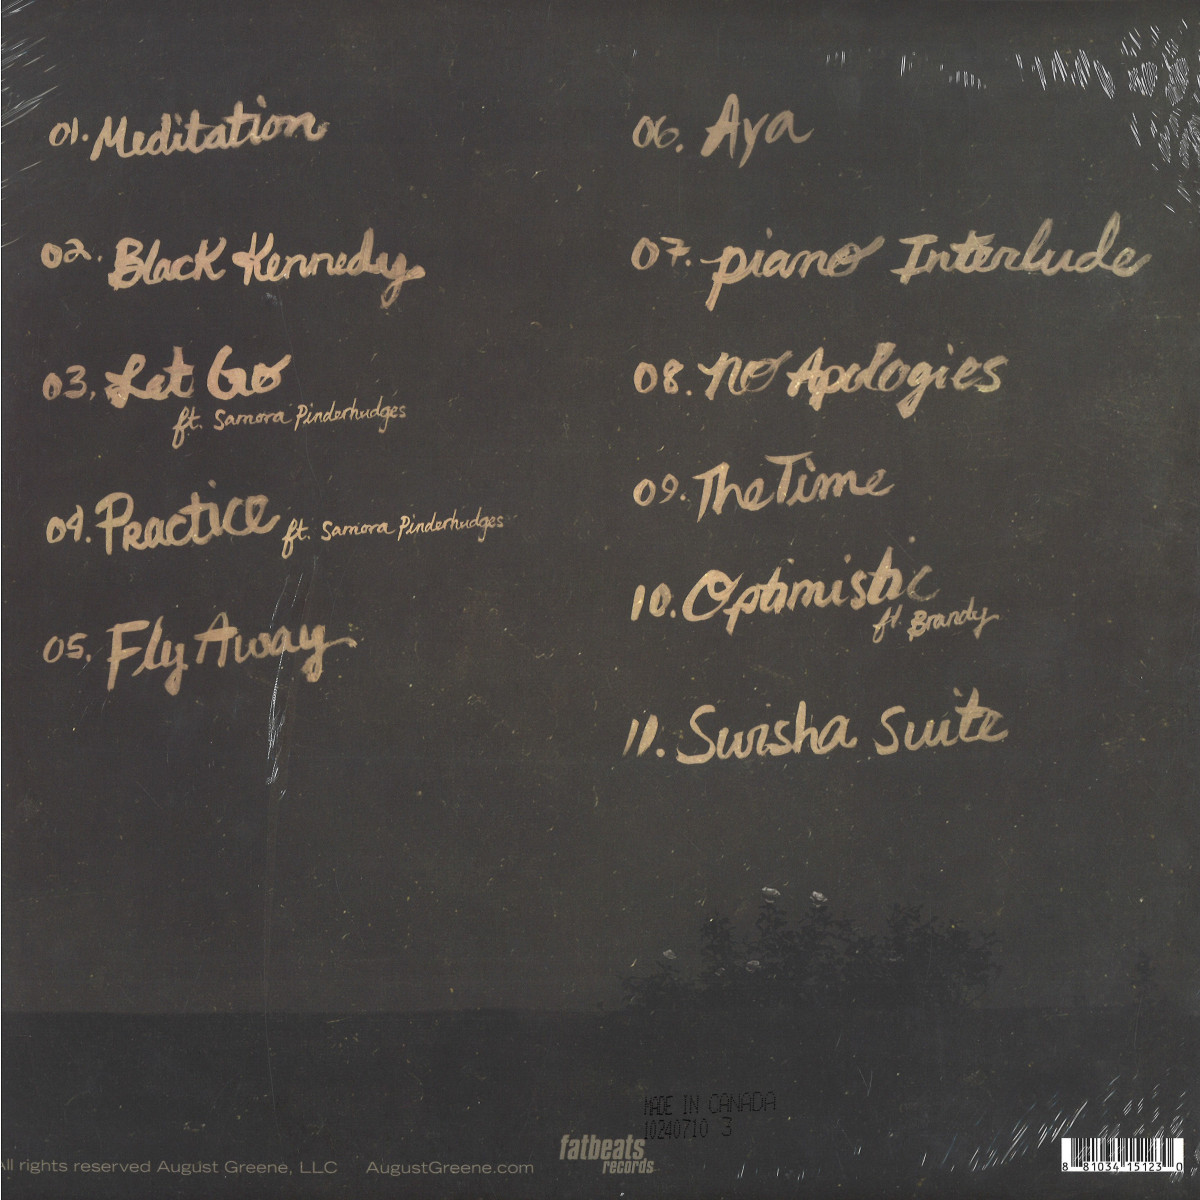 01. Meditation
02. Black Kennedy
03. Let Go
ft. Samora Pinderhudges
04. Practice ft. Samora Pinderhudges
05. Fly Away
06. Aya
07. piano Interlude
08. No Apologies
09. The Time
10. Optimistic
ft. Brandy
11. Swisha Suite
MADE IN CANADA
10240710 3
fatbeats
records
All rights reserved August Greene, LLC AugustGreene.com
8 81034 15123 0